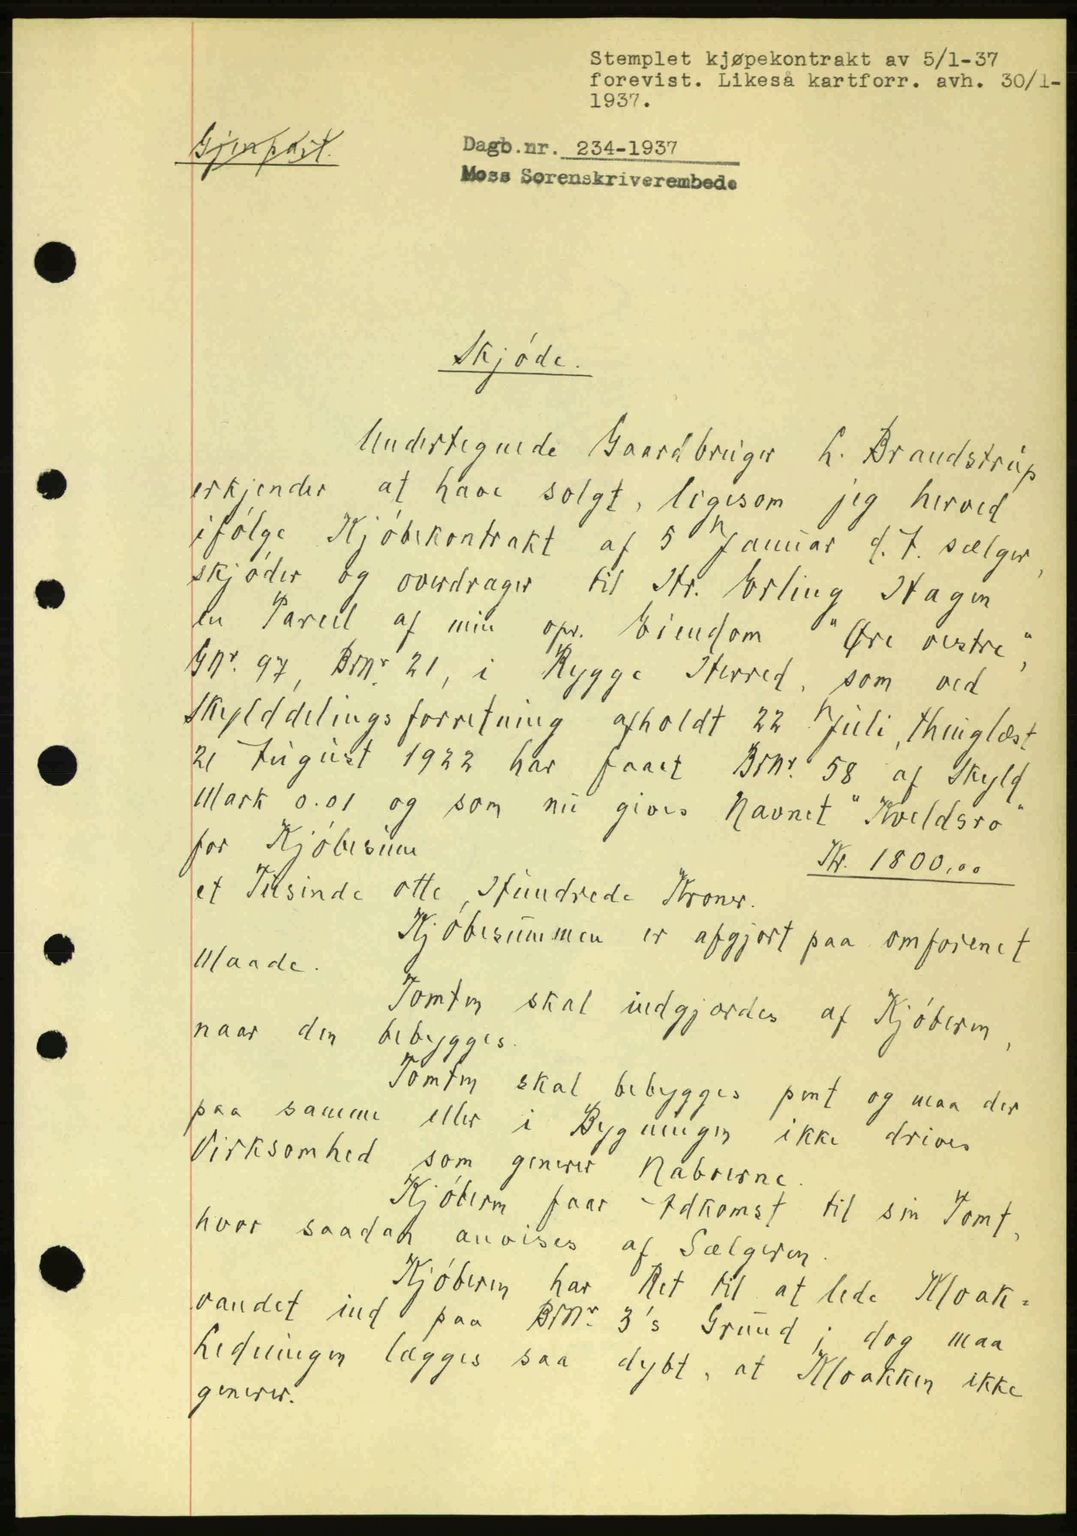 Stemplet kjøpekontrakt av 5/1-37
forevist. Likeså kartforr. avh. 30/1-
1937.
Gjenpart.
Dagb.nr. 234-1937
Moss Sorenskriverembede
Skjöde.
Undertegnede Gaardbruger L. Brandstrup
erkjender at have solgt, ligesom jeg herved
ifölge Kjöbekontrakt af 5 Januar d. A. sælger,
skjöder og overdrager til Hr. Erling Hagen
en Parcel af min opr. Eiendom "Øre vestre",
GNr. 97, BrNr. 21, i Rygge Herred, som ved
Skylddelingsforretning afholdt 22 Juli, thinglæst
21 August 1922 har faaet BrNr. 58 af Skyld
Mark 0.01 og som nu gives Navnet "Kveldsro"
for Kjöbesum Kr. 1800,00
et Tusinde otte Hundrede Kroner.
Kjöbesummen er afgjort paa omforenet
Maade.
Tomten skal indgjærdes af Kjöberen,
naar den bebygges.
Tomten skal bebygges pent og maa der
paa samme eller i Bygningen ikke drives
Virksomhed som generer Naboerne.
Kjöberen faar Adkomst til sin Tomt,
hvor saadan anvises af Sælgeren.
Kjöberen har Ret til at lede Kloak-
vandet ind paa BrNr. 3's Grund; dog maa
Ledningen lægges saa dybt, at Kloakken ikke
generer.